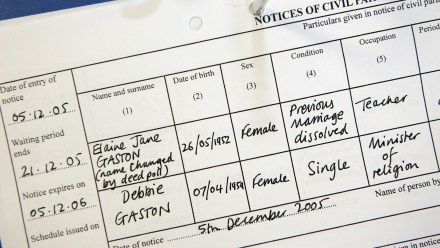 NOTICES OF CIVIL
Particulars given in notice of civil
Date of entry of
notice
05.12.05
Waiting period
ends
21.12.05
Notice expires on
05.12.06
Schedule issued on
Name and surname
(1)
Date of birth
(2)
Sex
(3)
Condition
(4)
Occupation
(5)
Period
Elaine Jane
GASTON
(name changed
by deed poll)
26/05/1952
Female
Previous
marriage
dissolved
Teacher
Debbie
GASTON
07/04/
Female
Single
Minister
of
religion
Date of notice 5th December 2005
Name of person by